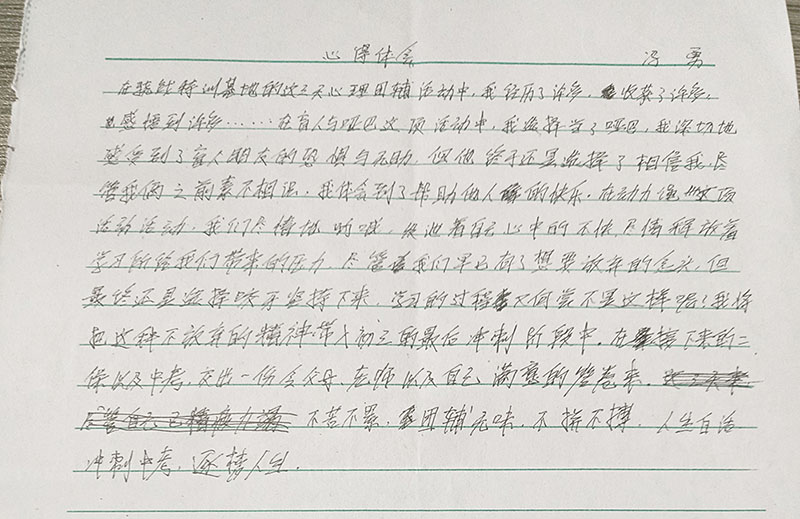 心得体会 冯勇
在骁然特训基地的这三天心理团辅活动中,我经历了许多,收获了许多,
感悟到许多……在盲人与哑巴这项活动中,我选择当了哑巴,我深切地
感受到了盲人朋友的恐惧与无助,但他终于还是选择了相信我,尽
管我俩之前素不相识,我体会到了帮助他人的快乐。在动力绳这项
活动活动,我们尽情地呐喊,发泄着自己心中的不快,尽情释放着
学习所给我们带来的压力,尽管我们早已有了想要放弃的念头,但
最终还是选择咬牙坚持下来,学习的过程又何尝不是这样呢!我将
把这种不放弃的精神带入初三的最后冲刺阶段中。在接下来的二
保以及中考,交出一份令父母、老师以及自己满意的答卷来。
不苦不累,团辅无味,不拼不搏,人生白活
冲刺中考,逐梦人生.